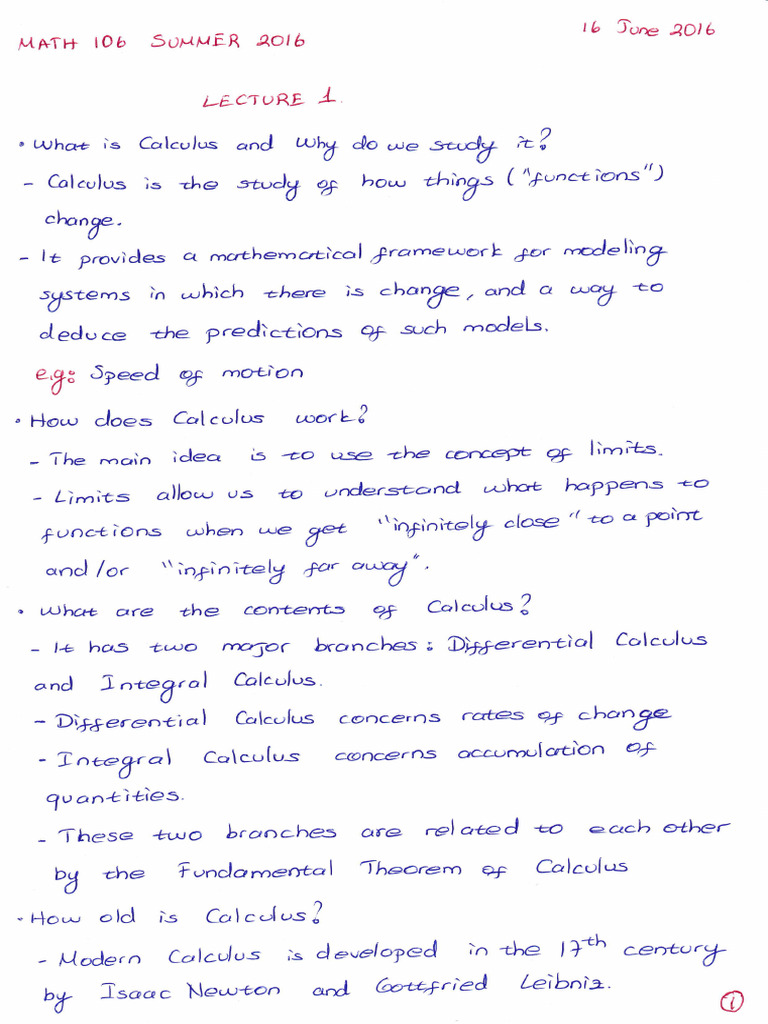 MATH 106 SUMMER 2016
16 June 2016
LECTURE 1.
• What is Calculus and why do we study it?
- Calculus is the study of how things ("functions")
change.
- It provides a mathematical framework for modeling
systems in which there is change, and a way to
deduce the predictions of such models.
e.g: Speed of motion
• How does Calculus work?
- The main idea is to use the concept of limits.
- Limits allow us to understand what happens to
functions when we get "infinitely close" to a point
and/or "infinitely far away".
• What are the contents of Calculus?
- It has two major branches: Differential Calculus
and Integral Calculus.
- Differential Calculus concerns rates of change
- Integral Calculus concerns accumulation of
quantities.
- These two branches are related to each other
by the Fundamental Theorem of Calculus
• How old is Calculus?
- Modern Calculus is developed in the 17th century
by Isaac Newton and Gottfried Leibniz.
1